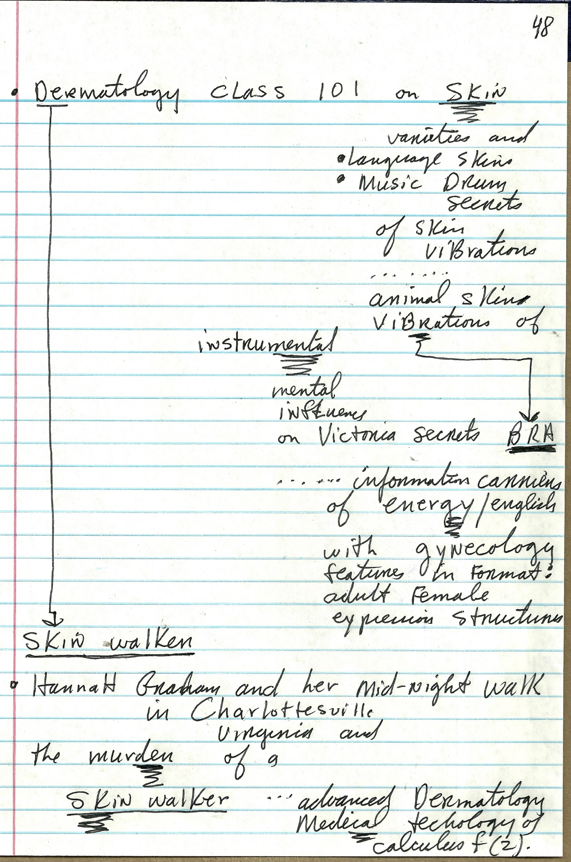 48
• Dermatology class 101 on SKin
varieties and
• Language Skins
• Music Drum
secrets
of skin
viBrations
... ....
animal skins
ViBrations of
instrumental
mental
influences
on Victoria Secrets BRA
...... information carriers
of energy/english
with gynecology
features in Format:
adult Female
expression structures
SKin walker
• Hannah Graham and her mid-night walk
in Charlottesville
Virginia and
the murder of a
SKin walker ... advanced Dermatology
Medical techology of
calculus f(2).